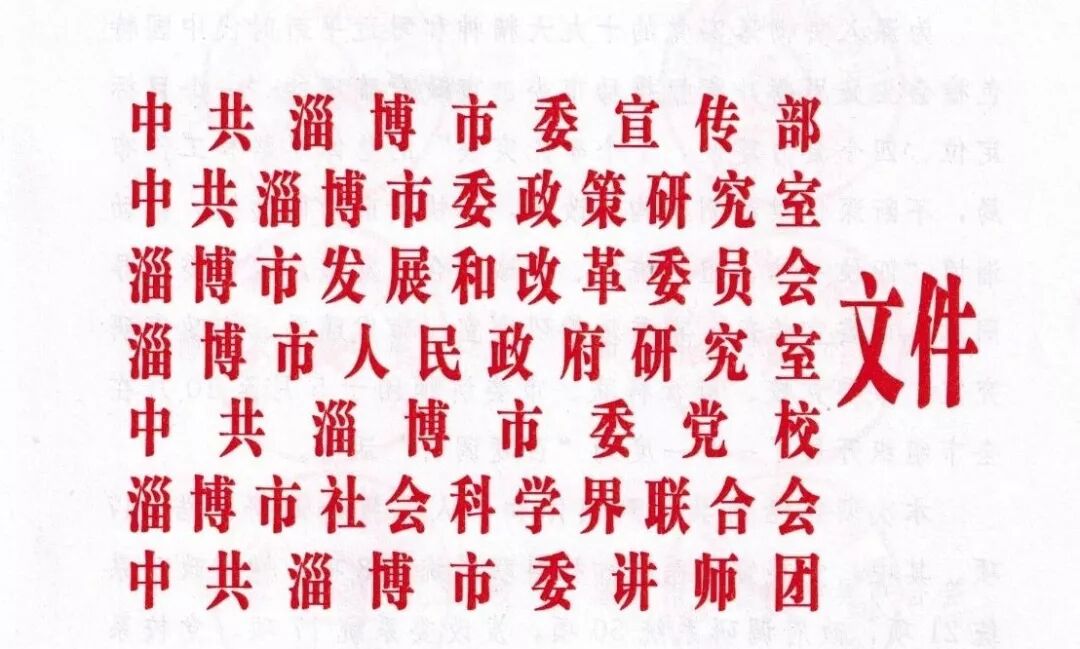 中共淄博市委宣传部
中共淄博市委政策研究室
淄博市发展和改革委员会
淄博市人民政府研究室
中共淄博市委党校
淄博市社会科学界联合会
中共淄博市委讲师团
文件